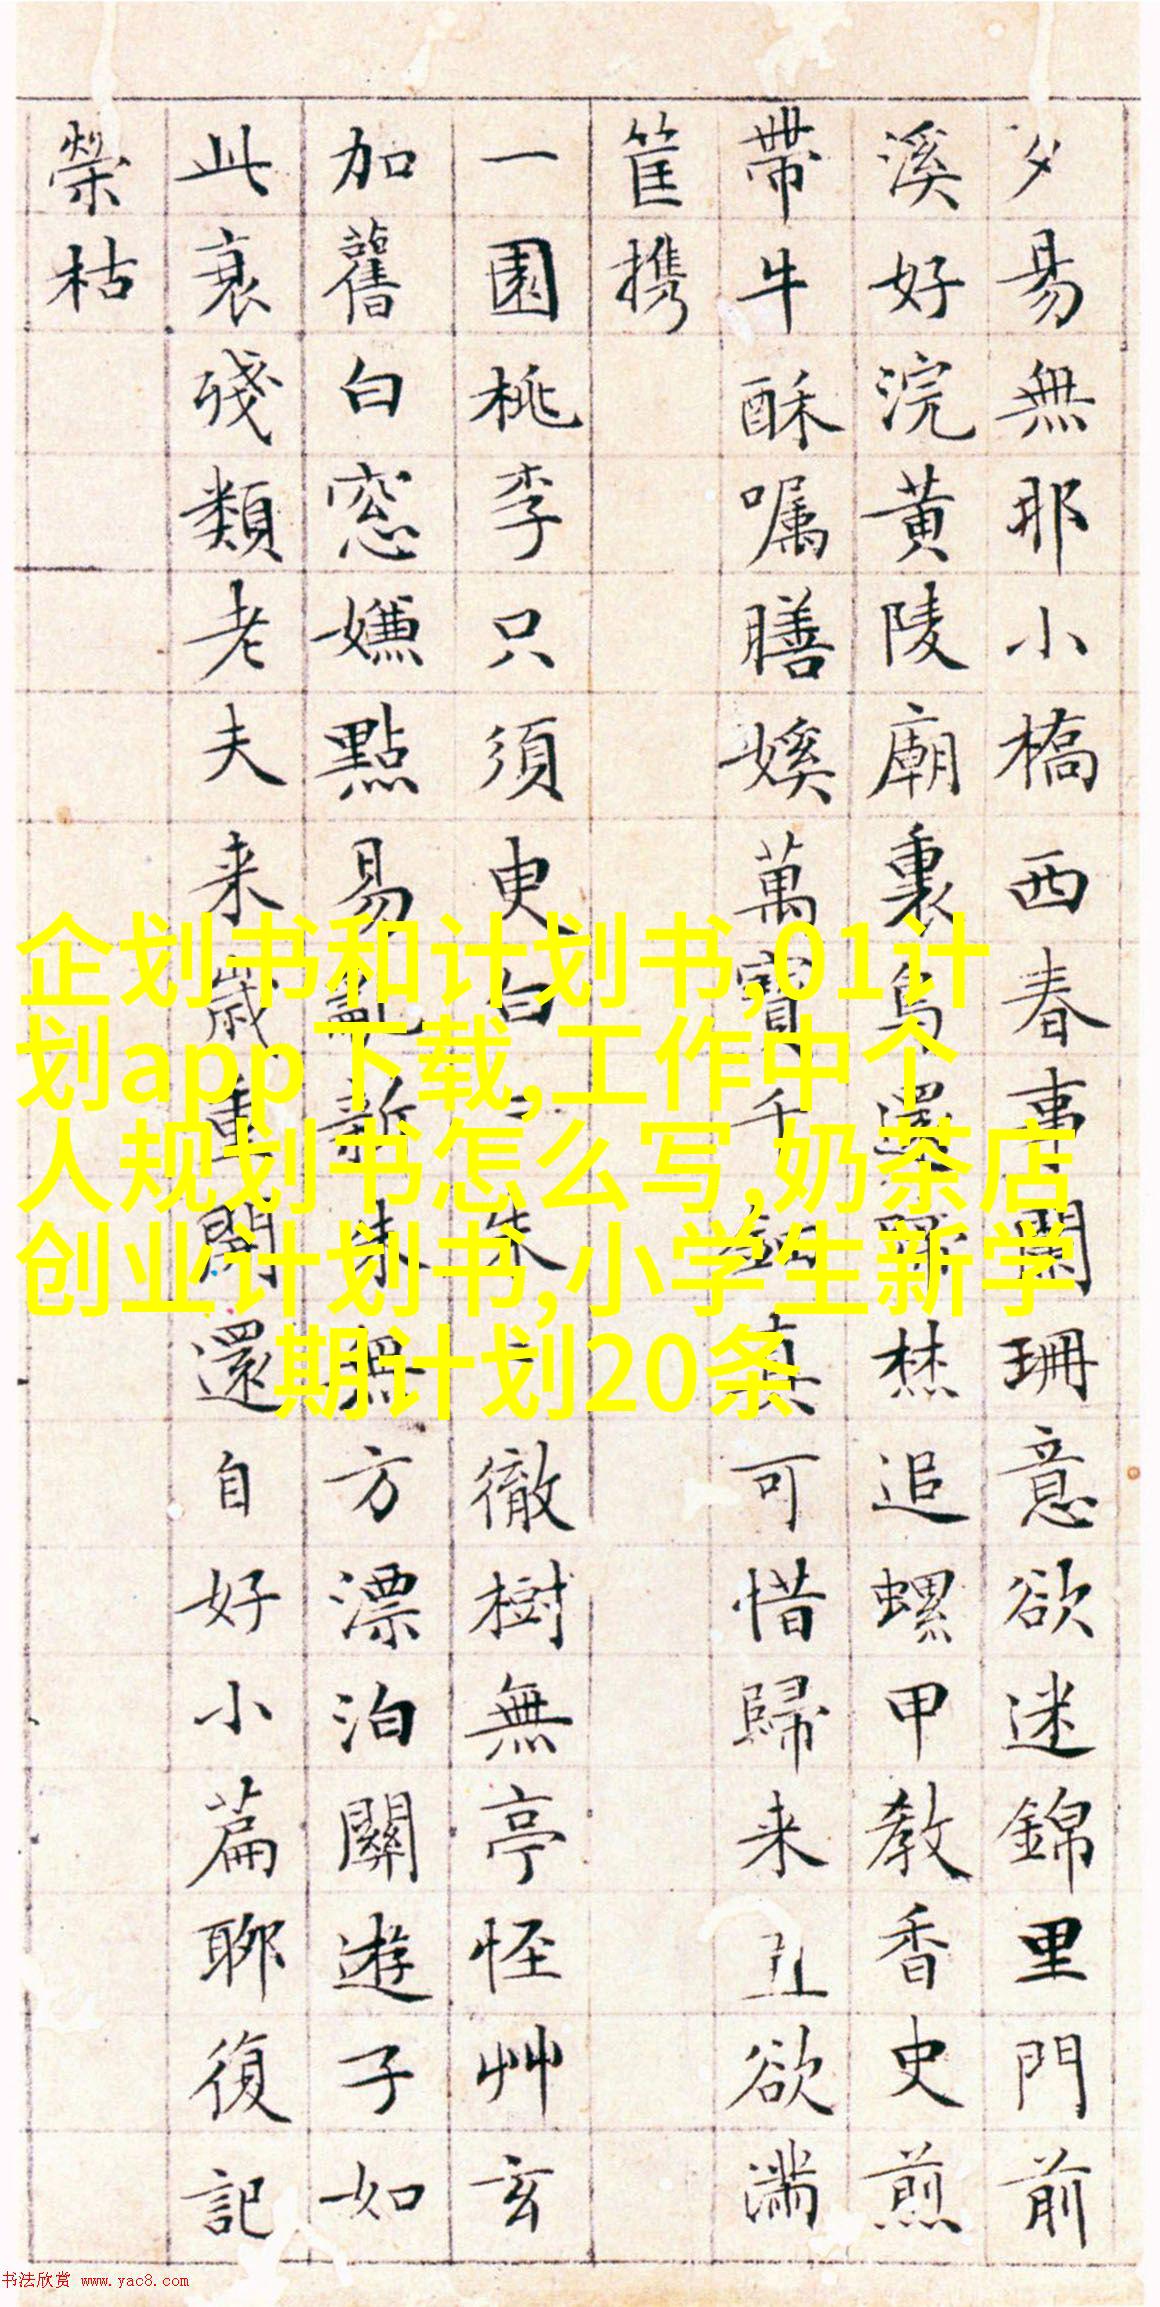 夕易無耶小橋西春事闌珊意欲迷錦里門前
溪好浣黃陵廟裏烏還焚追螺甲教香史煎
帶牛酥囑膳萬寶千釵真可惜歸来且欲滿
筐携
一園桃李只須臾白〻朱〻徹樹無亭怪艸玄
加舊白窓嫌點易亂新朱無方漂泊關遊子如
此衰殘類老夫来歲重開還自好小篇聊復記
榮枯
企划书和计划书,01计
划app下载,工作中个
人规划书怎么写,奶茶店
创业计划书,小学生新学
期计划20条
书法欣赏 www.yac8.com